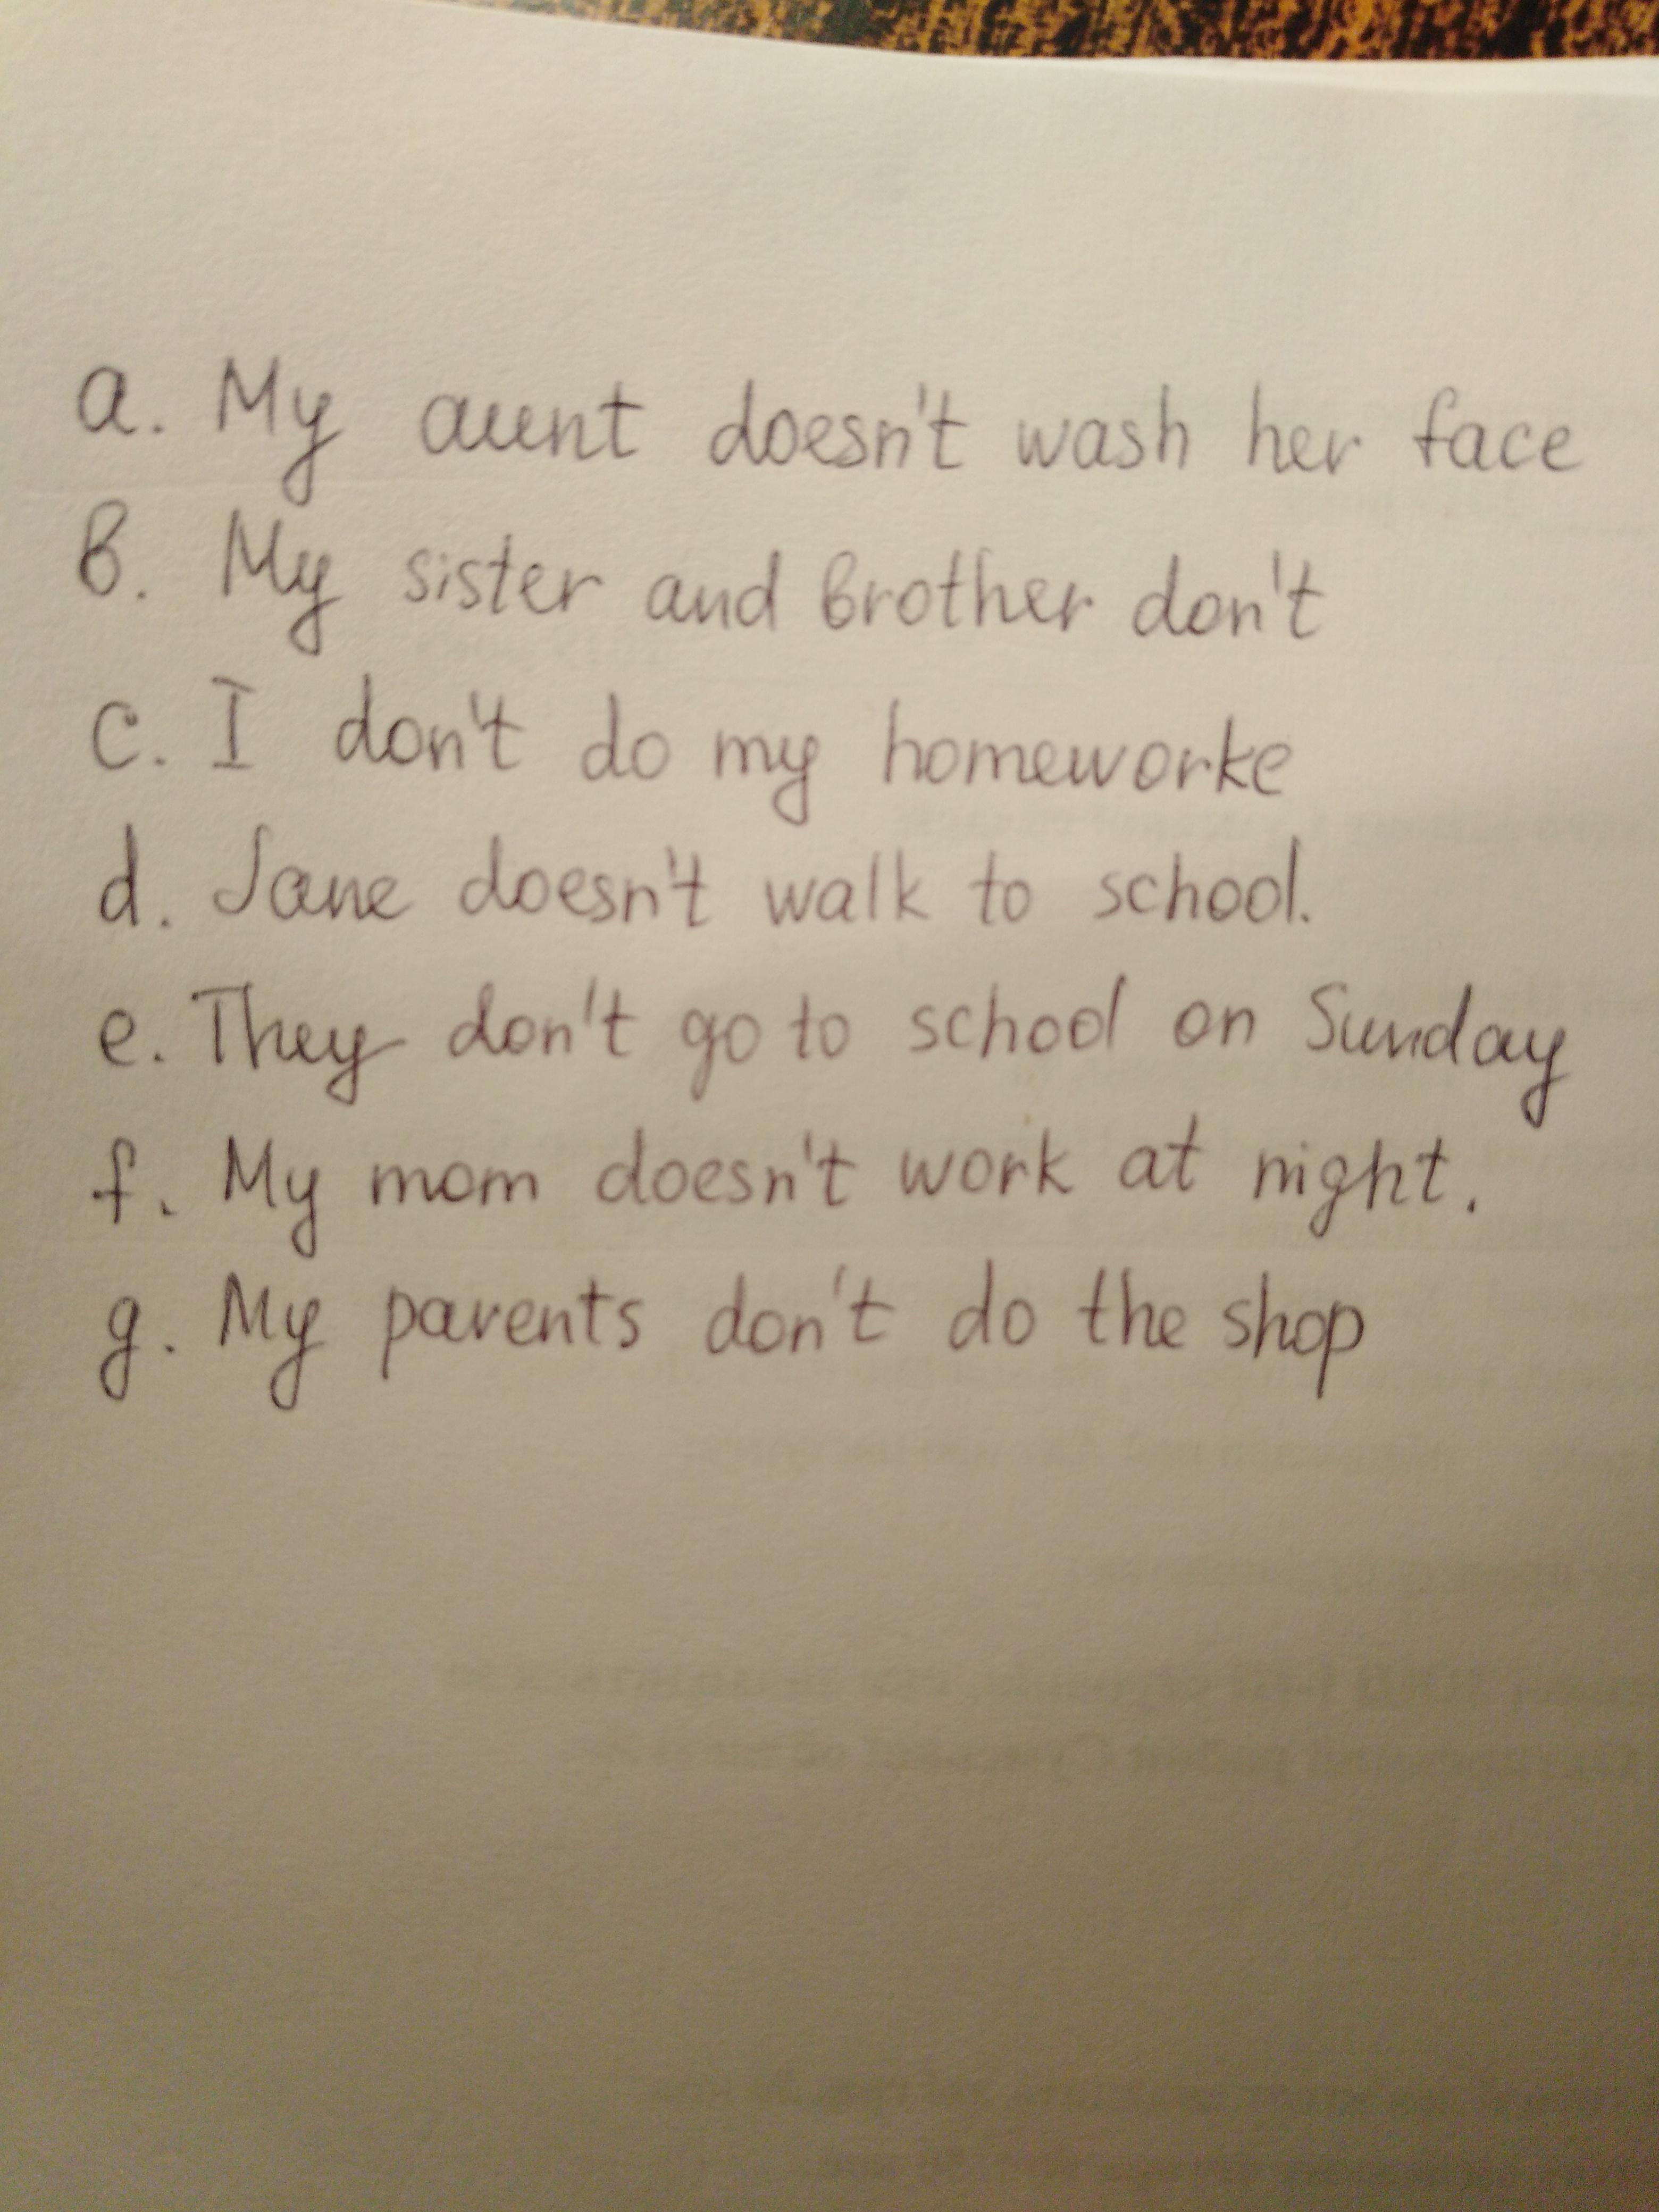 a. My aunt doesn't wash her face
b. My sister and brother don't
c. I don't do my homeworke
d. Jane doesn't walk to school.
e. They don't go to school on Sunday
f. My mom doesn't work at night.
g. My parents don't do the shop